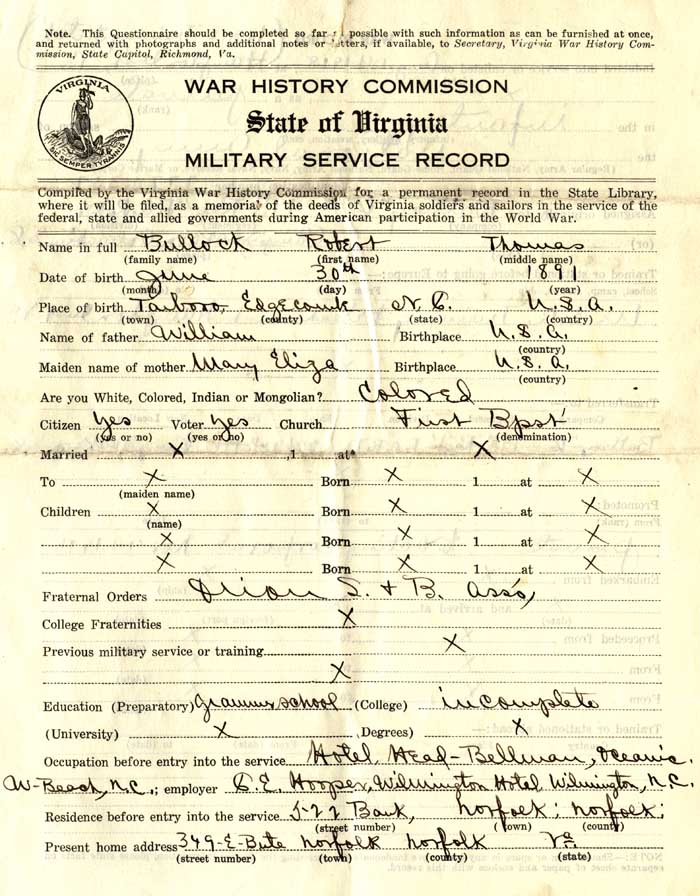 Note. This Questionnaire should be completed so far as possible with such information as can be furnished at once,
and returned with photographs and additional notes or letters, if available, to Secretary, Virginia War History Com-
mission, State Capitol, Richmond, Va.
VIRGINIA
SIC SEMPER TYRANNIS
WAR HISTORY COMMISSION
State of Virginia
MILITARY SERVICE RECORD
Compiled by the Virginia War History Commission for a permanent record in the State Library,
where it will be filed, as a memorial of the deeds of Virginia soldiers and sailors in the service of the
federal, state and allied governments during American participation in the World War.
Name in full Bullock Robert Thomas
(family name) (first name) (middle name)
Date of birth June 30th 1891
(month) (day) (year)
Place of birth Tarboro, Edgecomb N.C. U.S.A.
(town) (county) (state) (country)
Name of father William Birthplace U.S.A.
(country)
Maiden name of mother Mary Eliza Birthplace U.S.A.
(country)
Are you White, Colored, Indian or Mongolian? Colored
Citizen Yes Voter Yes Church First Bpst
(yes or no) (yes or no) (denomination)
Married X ,1 at X
To X Born X 1 at X
(maiden name)
Children X Born X 1 at X
(name)
X Born X 1 at X
X Born X 1 at X
Fraternal Orders S. & B. Asso,
College Fraternities X
Previous military service or training X
X
Education (Preparatory) Grammer school (College) incomplete
(University) X Degrees) X
Occupation before entry into the service Hotel Head-Bellman, Oceanic.
W-Beach, N.C.; employer C.E. Hooper, Wilmington Hotel, Wilmington, N.C.
Residence before entry into the service 522 Bank, Norfolk; Norfolk;
(street number) (town) (county)
Present home address 349-E-Bute Norfolk Norfolk Va
(street number) (town) (county) (state)